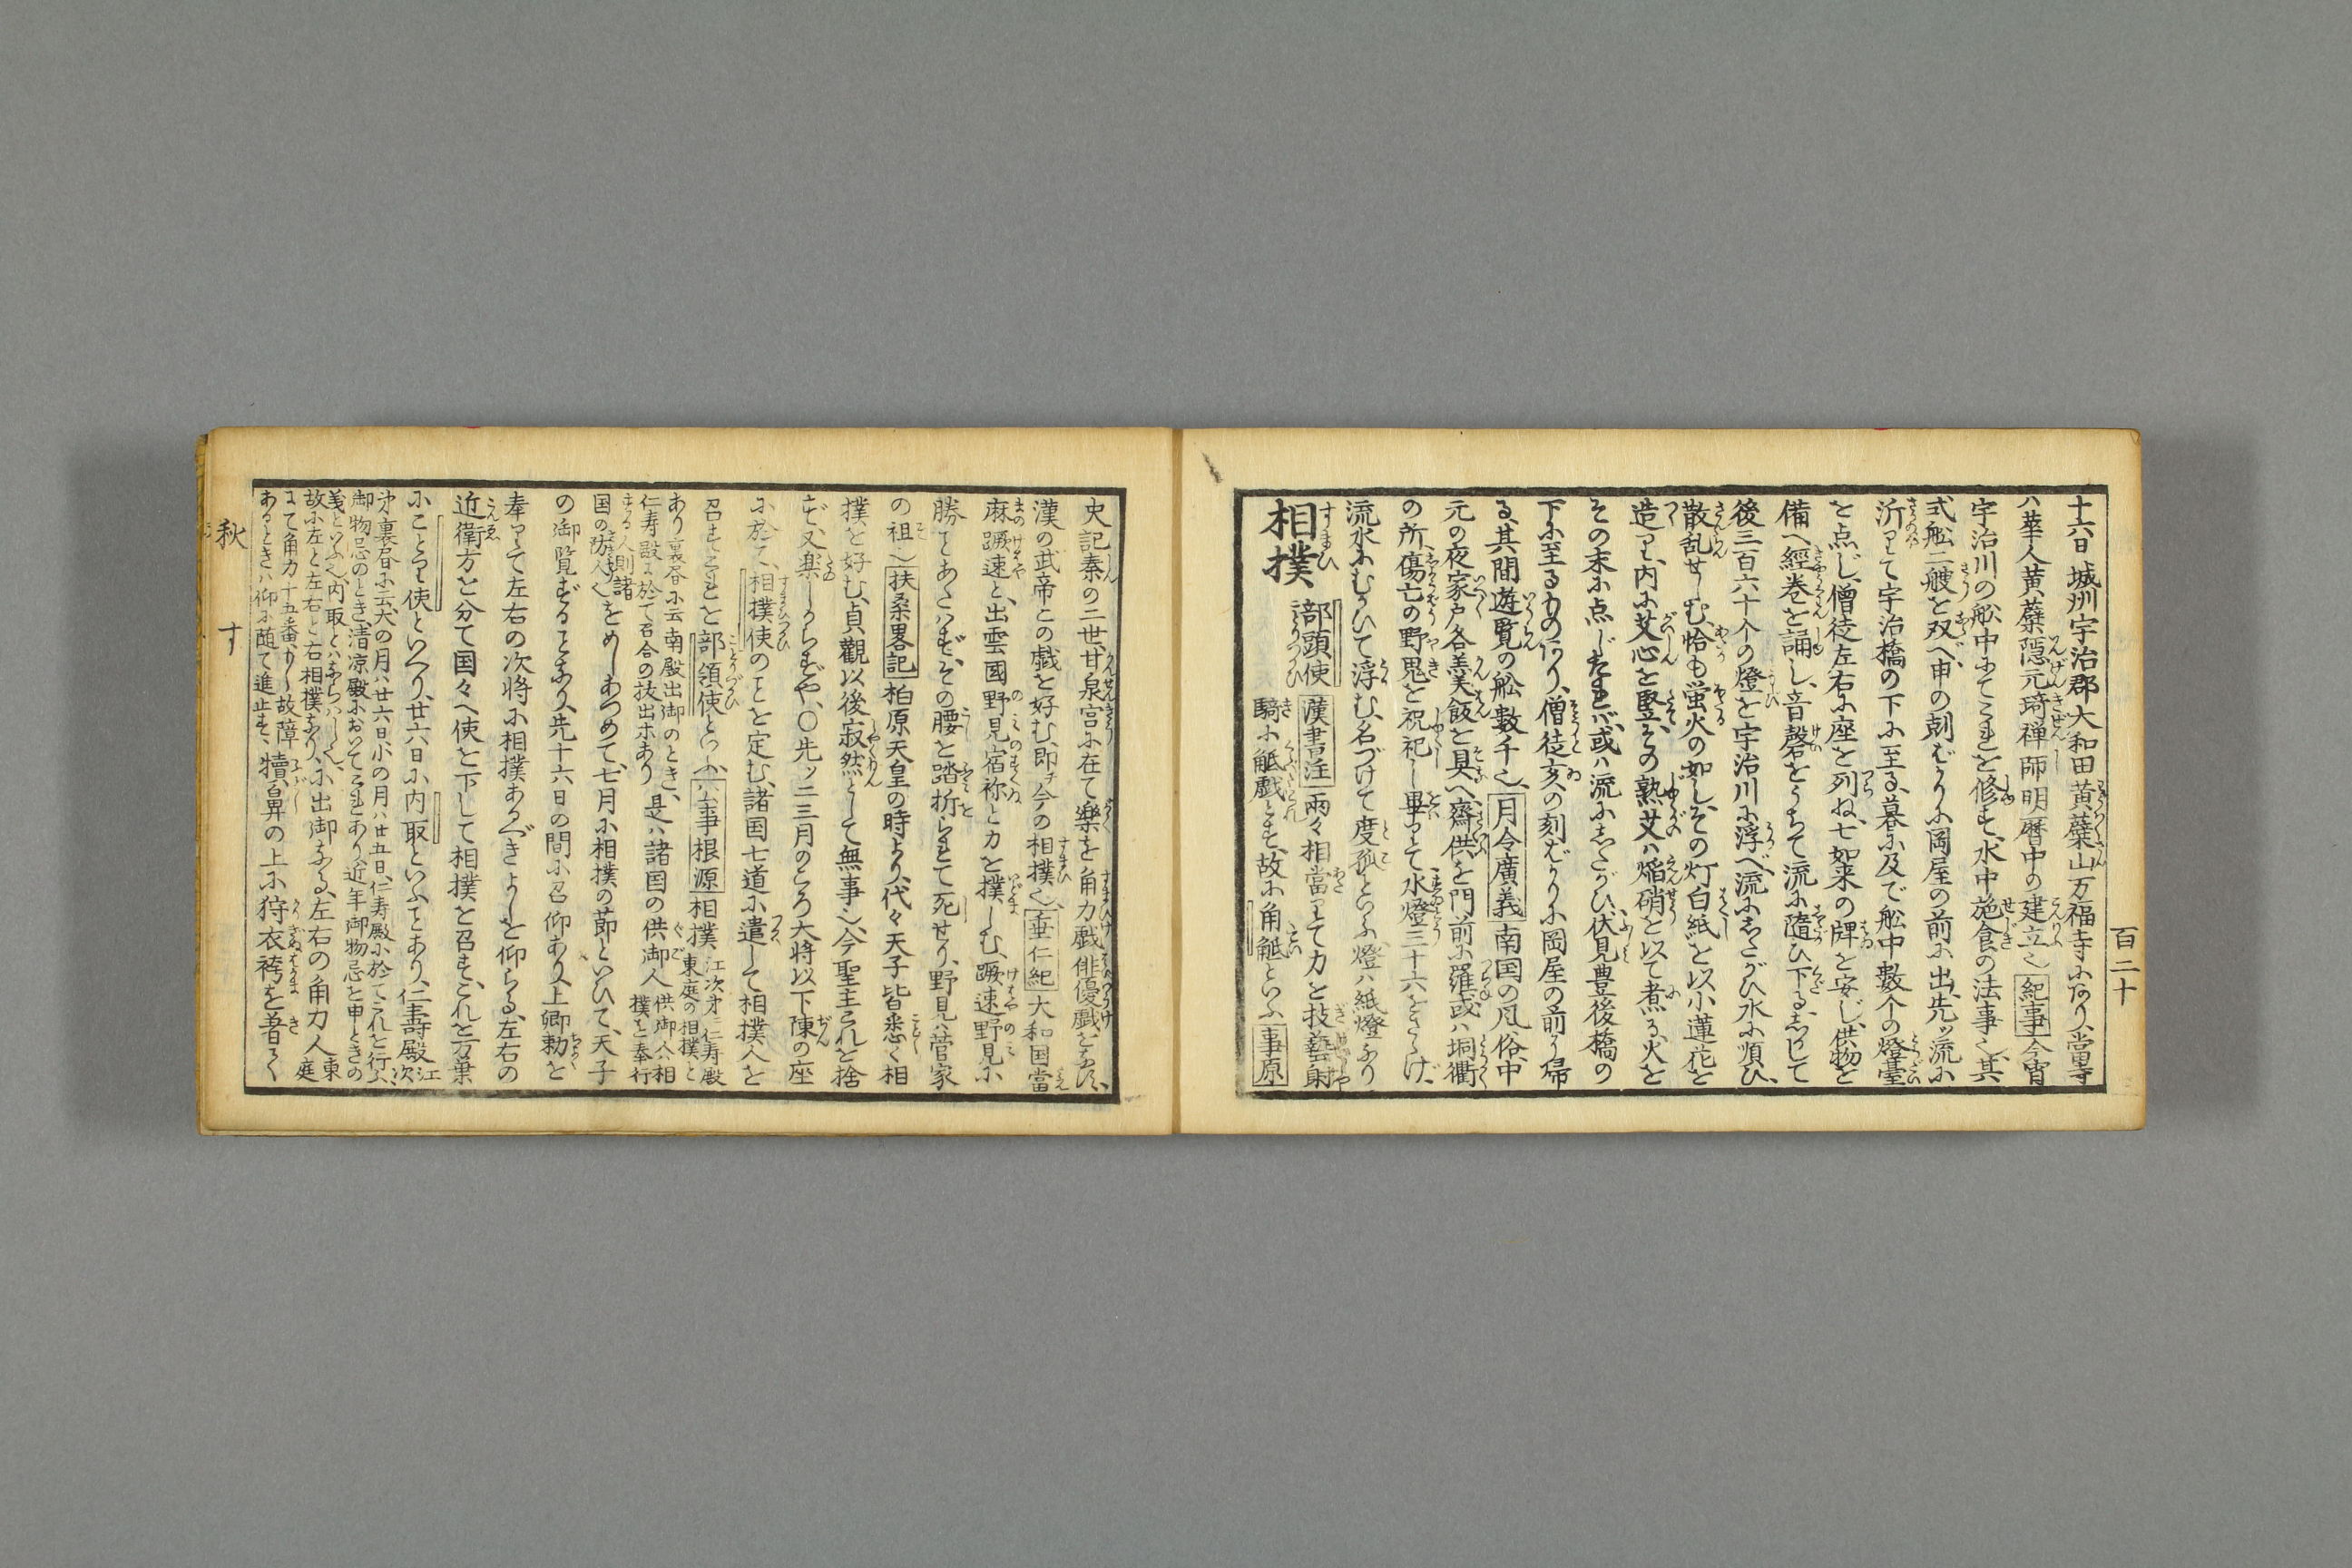 百二十
十六日城州宇治郡大和田黄檗山万福寺にあり、當寺
ハ華人黄檗隠元琦禅師明暦中の建立也 紀事 今宵
宇治川の舩中にてこれを修す、水中施食の法事也、其
式舩二艘を双べ、申の剋ばかりに岡屋の前に出、先ッ流に
泝りて宇治橋の下に至る、暮に及で舩中數个の燈臺
を点じ、僧徒左右に座を列ね、七如来の牌を安じ、供物を
備へ、經巻を誦し、音磬をうちて流に隨ひ下る、しかして
後三百六十个の燈を宇治川に浮べ、流にしたがひ水に順ひ、
散乱せしむ、恰も蛍火の如し、その灯白紙を以小蓮花を
造り、内に艾心を竪、その熟艾ハ焔硝を以て煮る、火を
その末に点じたれバ、或ハ流にしたがひ、伏見豊後橋の
下に至るものあり、僧徒亥の刻ばかりに岡屋の前より帰
る、其間遊覧の舩數千也 月令廣義 南国の凡俗、中
元の夜家戸各羮飯を具へ、齋供を門前に羅、或ハ垌衢
の所、傷亡の野鬼を祝祀し、畢りて水燈三十六をさゝげ、
流水にむかひて浮む、名づけて度孤といふ、燈ハ紙燈なり
相撲 部頭使 漢書注 兩々相當りて力を技藝射
騎に觝戯とす、故に角觝といふ 事原
史記秦の二世甘泉宮に在て樂を角力戯俳優戯をなす、
漢の武帝この戯を好む、即チ今の相撲也、 垂仁紀 大和国當
麻蹶速と、出雲國野見宿祢と力を撲しむ、蹶速野見に
勝ことあたハず、その腰を踏折られて死せり、野見ハ菅家
の祖也 扶桑畧記 柏原天皇の時より、代々天子皆悉く相
撲を好む、貞觀以後寂然として無事也、今聖主これを捨
ず、又楽しからずや、〇先ッ二三月のころ大将以下陳の座
に於て、相撲使のことを定む、諸国七道に遣して相撲人を
召す、これを部領使といふ、 公事根源 相撲 江次才ニ仁寿殿
東庭の相撲と
あり裏書に云南殿出御のとき、
仁寿殿に於て召合の抜出ホあり 是ハ諸国の供御人 供御人ハ相
撲を奉行
する人則諸
国の防人也 をめしあつめて、七月に相撲の節といひて、天子
の御覧ずることあり、先十六日の間に召仰あり、上卿勅を
奉りて左右の次将に相撲あるべきよしを仰らる、左右の
近衛方を分て国々へ使を下して相撲を召す、これを万葉
にことり使といへり、廿六日に内取といふことあり、仁壽殿 江次
才裏書に云、大の月ハ廿六日小の月ハ廿五日、仁寿殿に於てこれを行ふ、
御物忌のとき、清凉殿においてこれあり、近年御物忌を申ときの
義といふ也、内取とハならハし也、
故に左と左右と右相撲あり、に出御なる、左右の角力人東庭
にて角力十五番も 故障
あるときハ仰に随て進止す、 犢鼻の上に狩衣袴を着て
秋 す